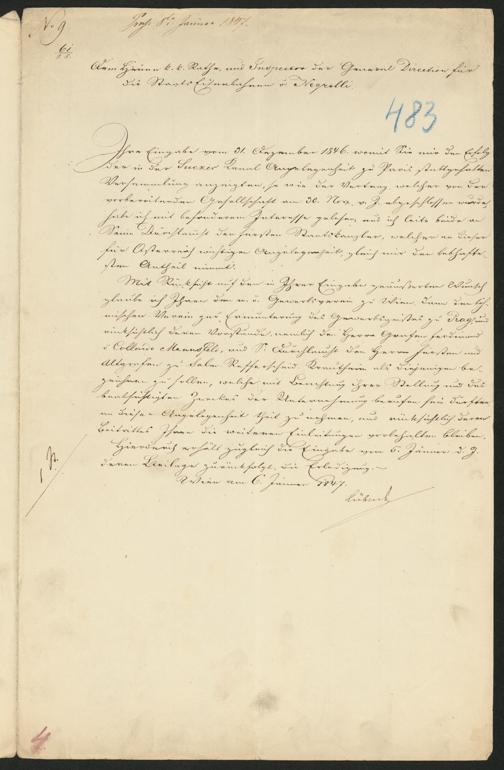 No 9
Präs. 8ten Januar 1847.
61
483
Dem Herrn k. k. Rathe und Inspector der General Direction für
die Staats Eisenbahnen v. Negrelli.
Ihre Eingabe vom 31. Dezember 1846 womit Sie mir den Erfolg
der in der Suezer Kanal Angelegenheit zu Paris stattgehabten
Versammlung anzeigten, so wie den Vertrag welcher von der
vorbereitenden Gesellschaft am 30. Nov. v. J. abgeschlossen wurde,
habe ich mit besonderem Interesse gelesen und ich leite beide an
Seine Durchlaucht den Fürsten Staatskanzler, welcher an dieser
für Österreich wichtigen Angelegenheit, gleich mir den lebhafte-
sten Antheil nimmt.
Mit Rücksicht auf den in Ihrer Eingabe geäusserten Wunsch
glaube ich Ihnen den n. ö. Gewerbsverein zu Wien, dann den böh-
mischen Verein zur Ermunterung des Gewerbsgeistes zu Prag, und
rücksichtlich deren Vorstände, nemlich die Herren Grafen Ferdinand
v. Colloredo Mannsfeld, und Se Durchlaucht den Herrn Fürsten und
Altgrafen zu Salm Reifferscheid Krautheim als diejenigen be-
zeichnen zu sollen, welche mit Beachtung ihrer Stellung und des
beabsichtigten Zweckes der Unternehmung berufen sein dürften
an dieser Angelegenheit theil zu nehmen, und rücksichtlich deren
Beitrittes Ihnen die weiteren Einleitungen vorbehalten bleiben.
Hierdurch erhält zugleich die Eingabe vom 5. Jänner d. J.
deren Beilage zurückfolgt, die Erledigung.
Wien am 6. Jänner 1847.
Kübeck
4